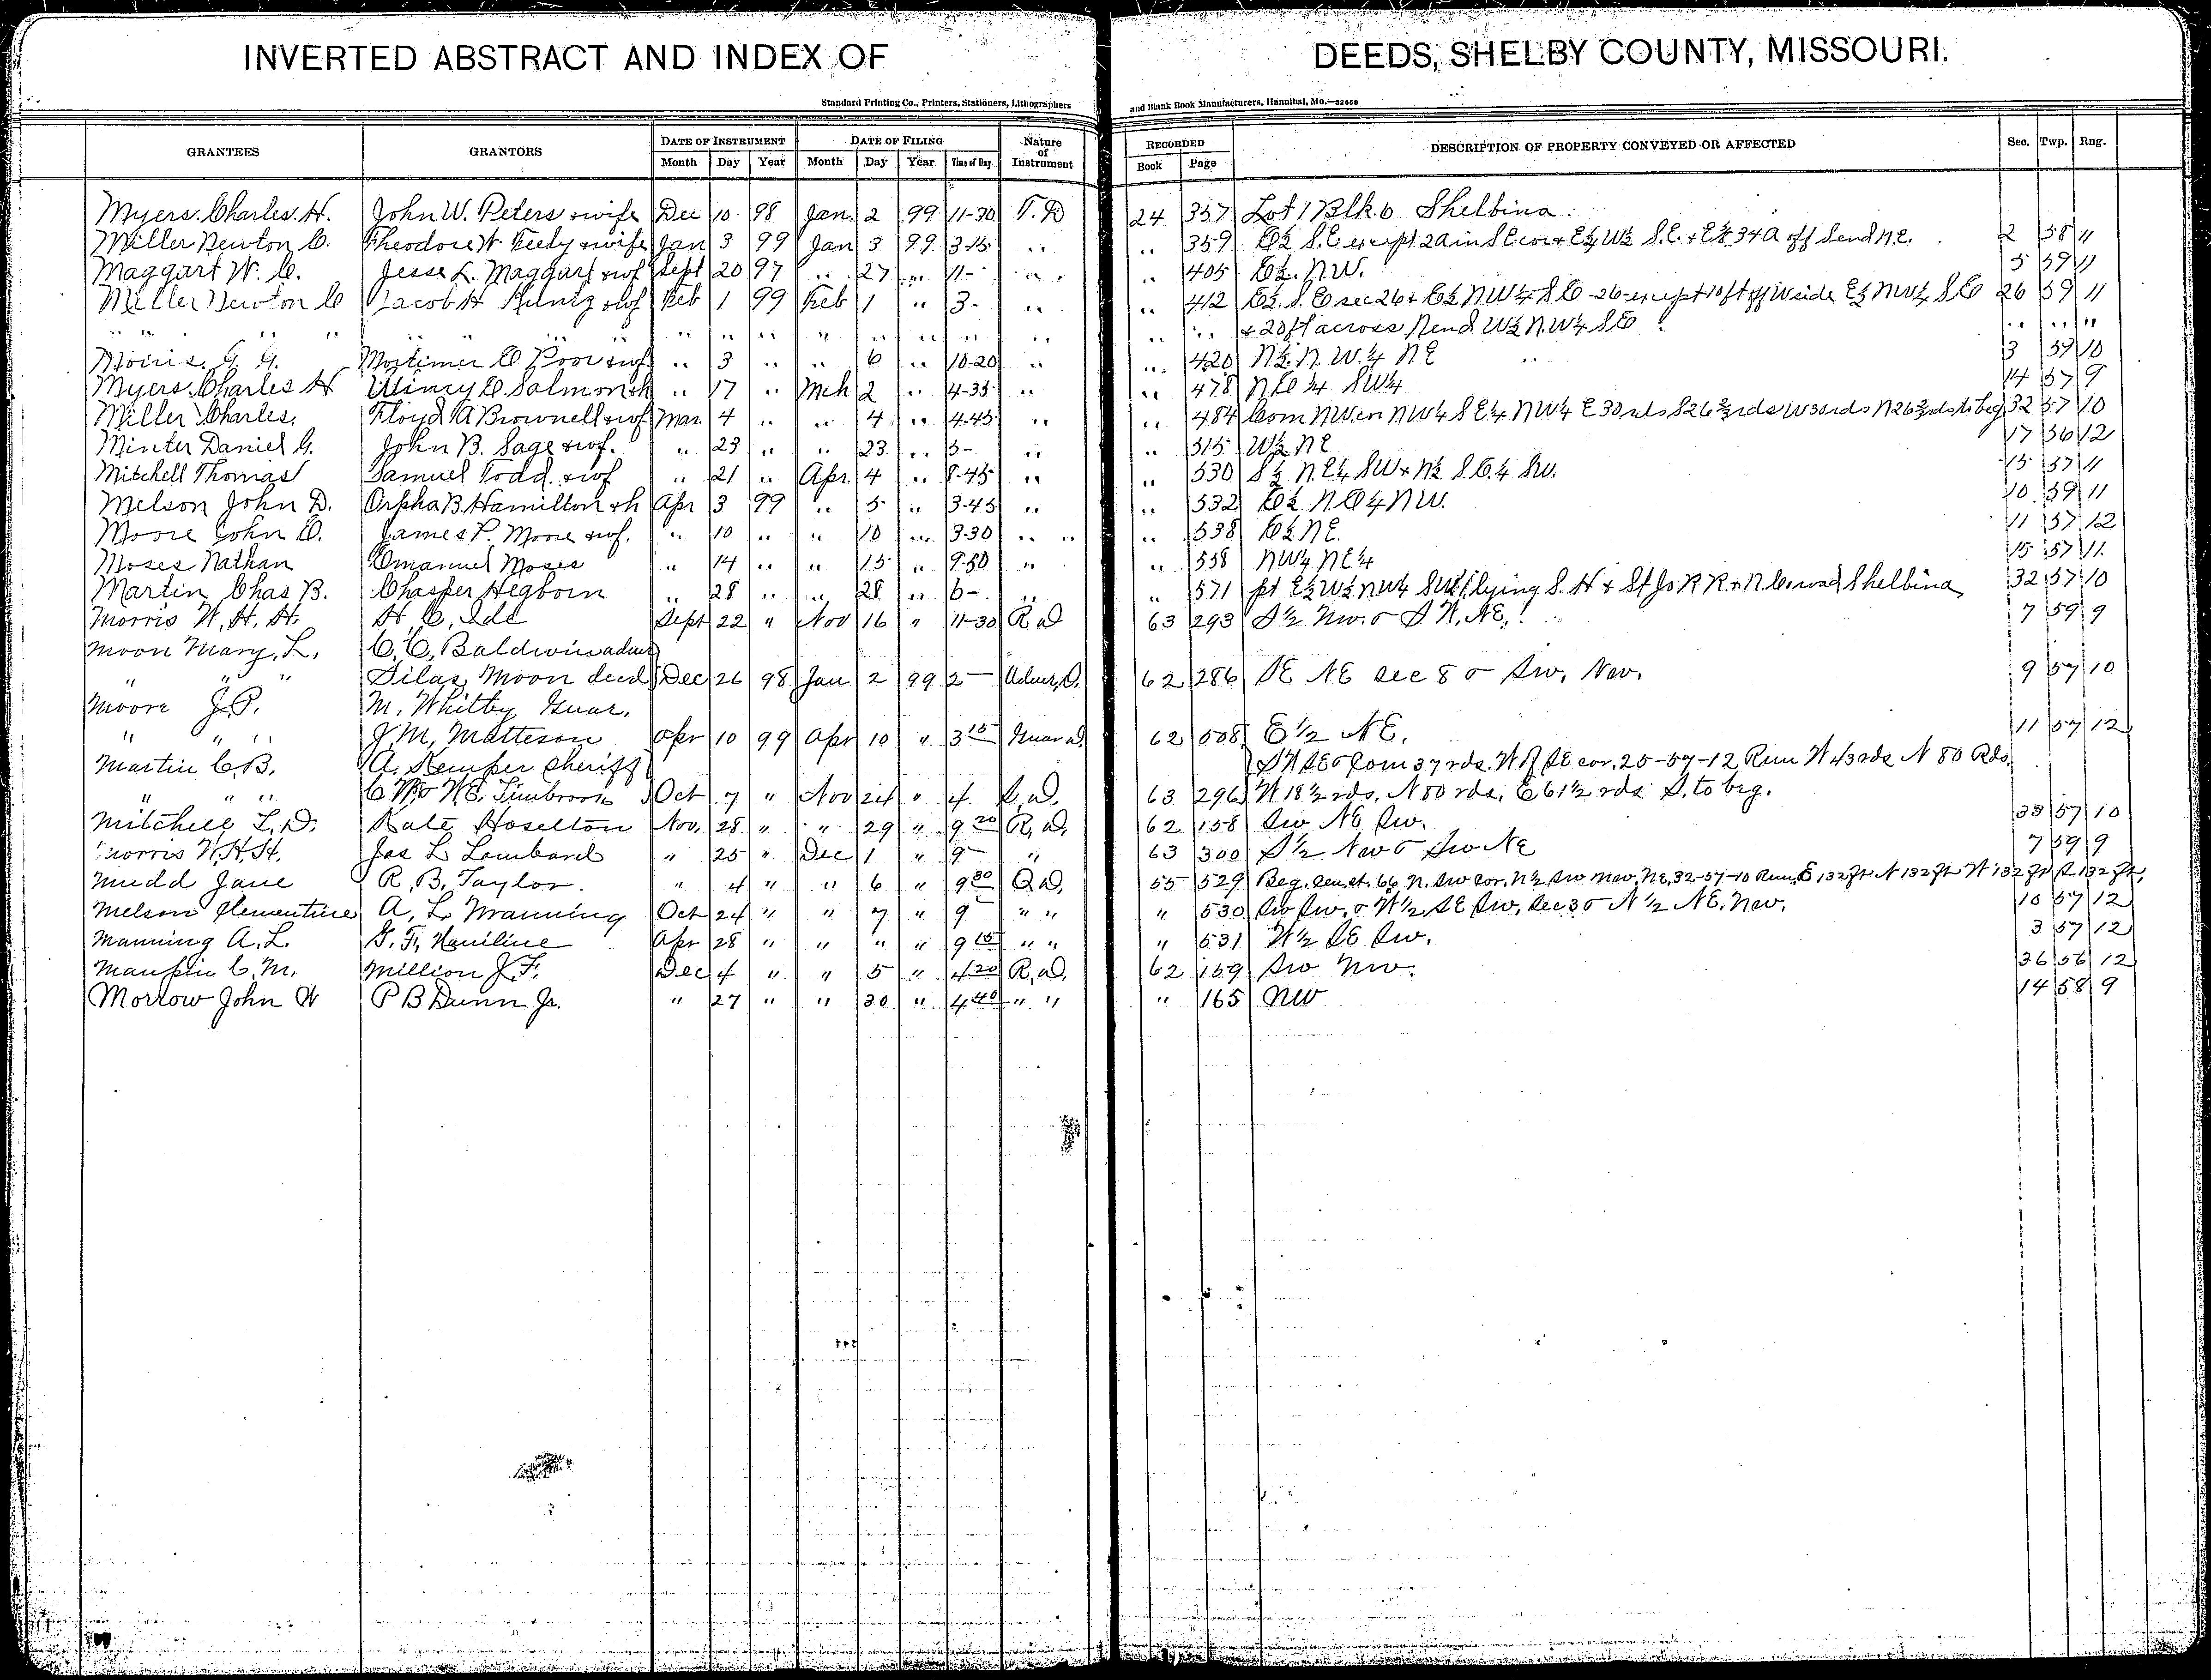 INVERTED ABSTRACT AND INDEX OF DEEDS, SHELBY COUNTY, MISSOURI.
Standard Printing Co., Printers, Stationers, Lithographers and Blank Book Manufacturers, Hannibal, Mo.—32658
GRANTEES GRANTORS DATE OF INSTRUMENT DATE OF FILING Nature of Instrument RECORDED DESCRIPTION OF PROPERTY CONVEYED OR AFFECTED Sec. Twp. Rng.
Month Day Year Month Day Year Time of Day Book Page
Myers Charles H. John W. Peters & wife Dec 10 98 Jan. 2 99 11-30 T. D 24 357 Lot 1 Blk. 6 Shelbina.
Miller Newton C. Theodore W. & wife Jan 3 99 Jan 3 99 3-15 " " 359 E½ S.E except 2A in S.E cor & E½ W½ S.E. & E½ 34A off S end N.E. 2 58 11
Maggart W. C. Jesse L. Maggart & wf Sept 20 97 " 27 " 11- " " 405 E½. N.W. 5 59 11
Miller Newton C Jacob H & wf Feb 1 99 Feb 1 " 3- " " 412 E½. S. E sec 26 & E½ NW¼ S E - 26 - except 10 ft off W side E½ NW¼ S E 26 59 11
" " " " " " " " " " " " " & 20 ft across N end W½ N.W¼ S E " " "
Morris. G. G. Mortimer E Poor & wf " 3 " " 6 " 10-20 " " 420 N½. N. W. ¼ N E 3 59 10
Myers Charles H E Salmon & h " 17 " Mch 2 " 4-35 " " 478 N E ¼ SW¼ 14 57 9
Miller Charles. Floyd A Brownell & wf Mar. 4 " " 4 " 4-45 " " 484 Com NW cn NW¼ S E¼ NW¼ E 30 rds S 26⅔ rds W 30 rds N 26⅔ rds to beg 32 57 10
Minter Daniel G. John B. Sage & wf. " 23 " " 23 " 5- " " 515 W½ N E 17 56 12
Mitchell Thomas Samuel Todd & wf " 21 " Apr. 4 " 8-45 " " 530 S½ N.E¼ SW & N½ S.E.¼ SW. 15 57 11
Melson John D. Orpha B. Hamilton & h Apr 3 99 " 5 " 3-45 " " 532 E½ N.E¼ N.W. 10 59 11
Moore John E. James P. Moore & wf. " 10 " " 10 " 3-30 " " " 538 E½ N E. 11 57 12
Moses Nathan Emanuel Moses " 14 " " 15 " 9-50 " " 558 NW¼ NE¼ 15 57 11
Martin Chas B. Chasper Hegborn " 28 " " 28 " 6- " " 571 pt E½ W½ NW¼ lying S. H & St Jo R R. & N. Shelbina 32 57 10
Morris W. H. H. H. C. Ide Sept 22 " Nov 16 " 11-30 R D 63 293 S½ Nw. & S W. NE. 7 59 9
Moon Mary. L. C. C. Baldwin admr
" " " Silas Moon decd Dec 26 98 Jan 2 99 2— Admr. D. 62 286 SE NE sec 8 & Sw. Nw. 9 57 10
Moore J. P. M. Whitby Guar.
" " " J. M. Matteson Apr 10 99 Apr 10 " 3 15 Guar D. 62 508 E ½ NE. 11 57 12
Martin C. B. A. Kemper Sheriff SW SE & Com 37 rds. W of SE cor. 25-57-12 Run W 43 rds N 80 Rds.
" " " C W & W E. Timbrook Oct 7 " Nov 24 " 4 S. D. 63 296 W 18½ rds. N 80 rds. E 61½ rds S. to beg.
Mitchell L. D. Kate Hoselton Nov. 28 " " 29 " 9 20 R. D. 62 158 Sw NE Sw. 33 57 10
Morris W. H. H. Jas L Lombard " 25 " Dec 1 " 9— " 63 300 S ½ Nw & Sw NE 7 59 9
Mudd Jane R. B. Taylor. " 4 " " 6 " 9 30 Q D. 55 529 Beg. 66 N. Sw cor. N½ Sw Nw. NE. 32-57-10 Run E 132 ft N 132 ft W 132 ft S 132 ft.
Melson Clementine A. L. Manning Oct 24 " " 7 " 9 " " " 530 Sw Sw. & W½ SE Sw. Sec 3 & N½ NE. Nw. 10 57 12
Manning A. L. G. F. Haniline Apr 28 " " " " 9 15 " " " 531 W½ SE Sw. 3 57 12
Maupin C. M. Million J. F. Dec 4 " " 5 " 4 20 R. D. 62 159 Sw Nw. 36 56 12
Morrow John W P B Dunn Jr. " 27 " " 30 " 4 40 " " " 165 NW 14 58 9